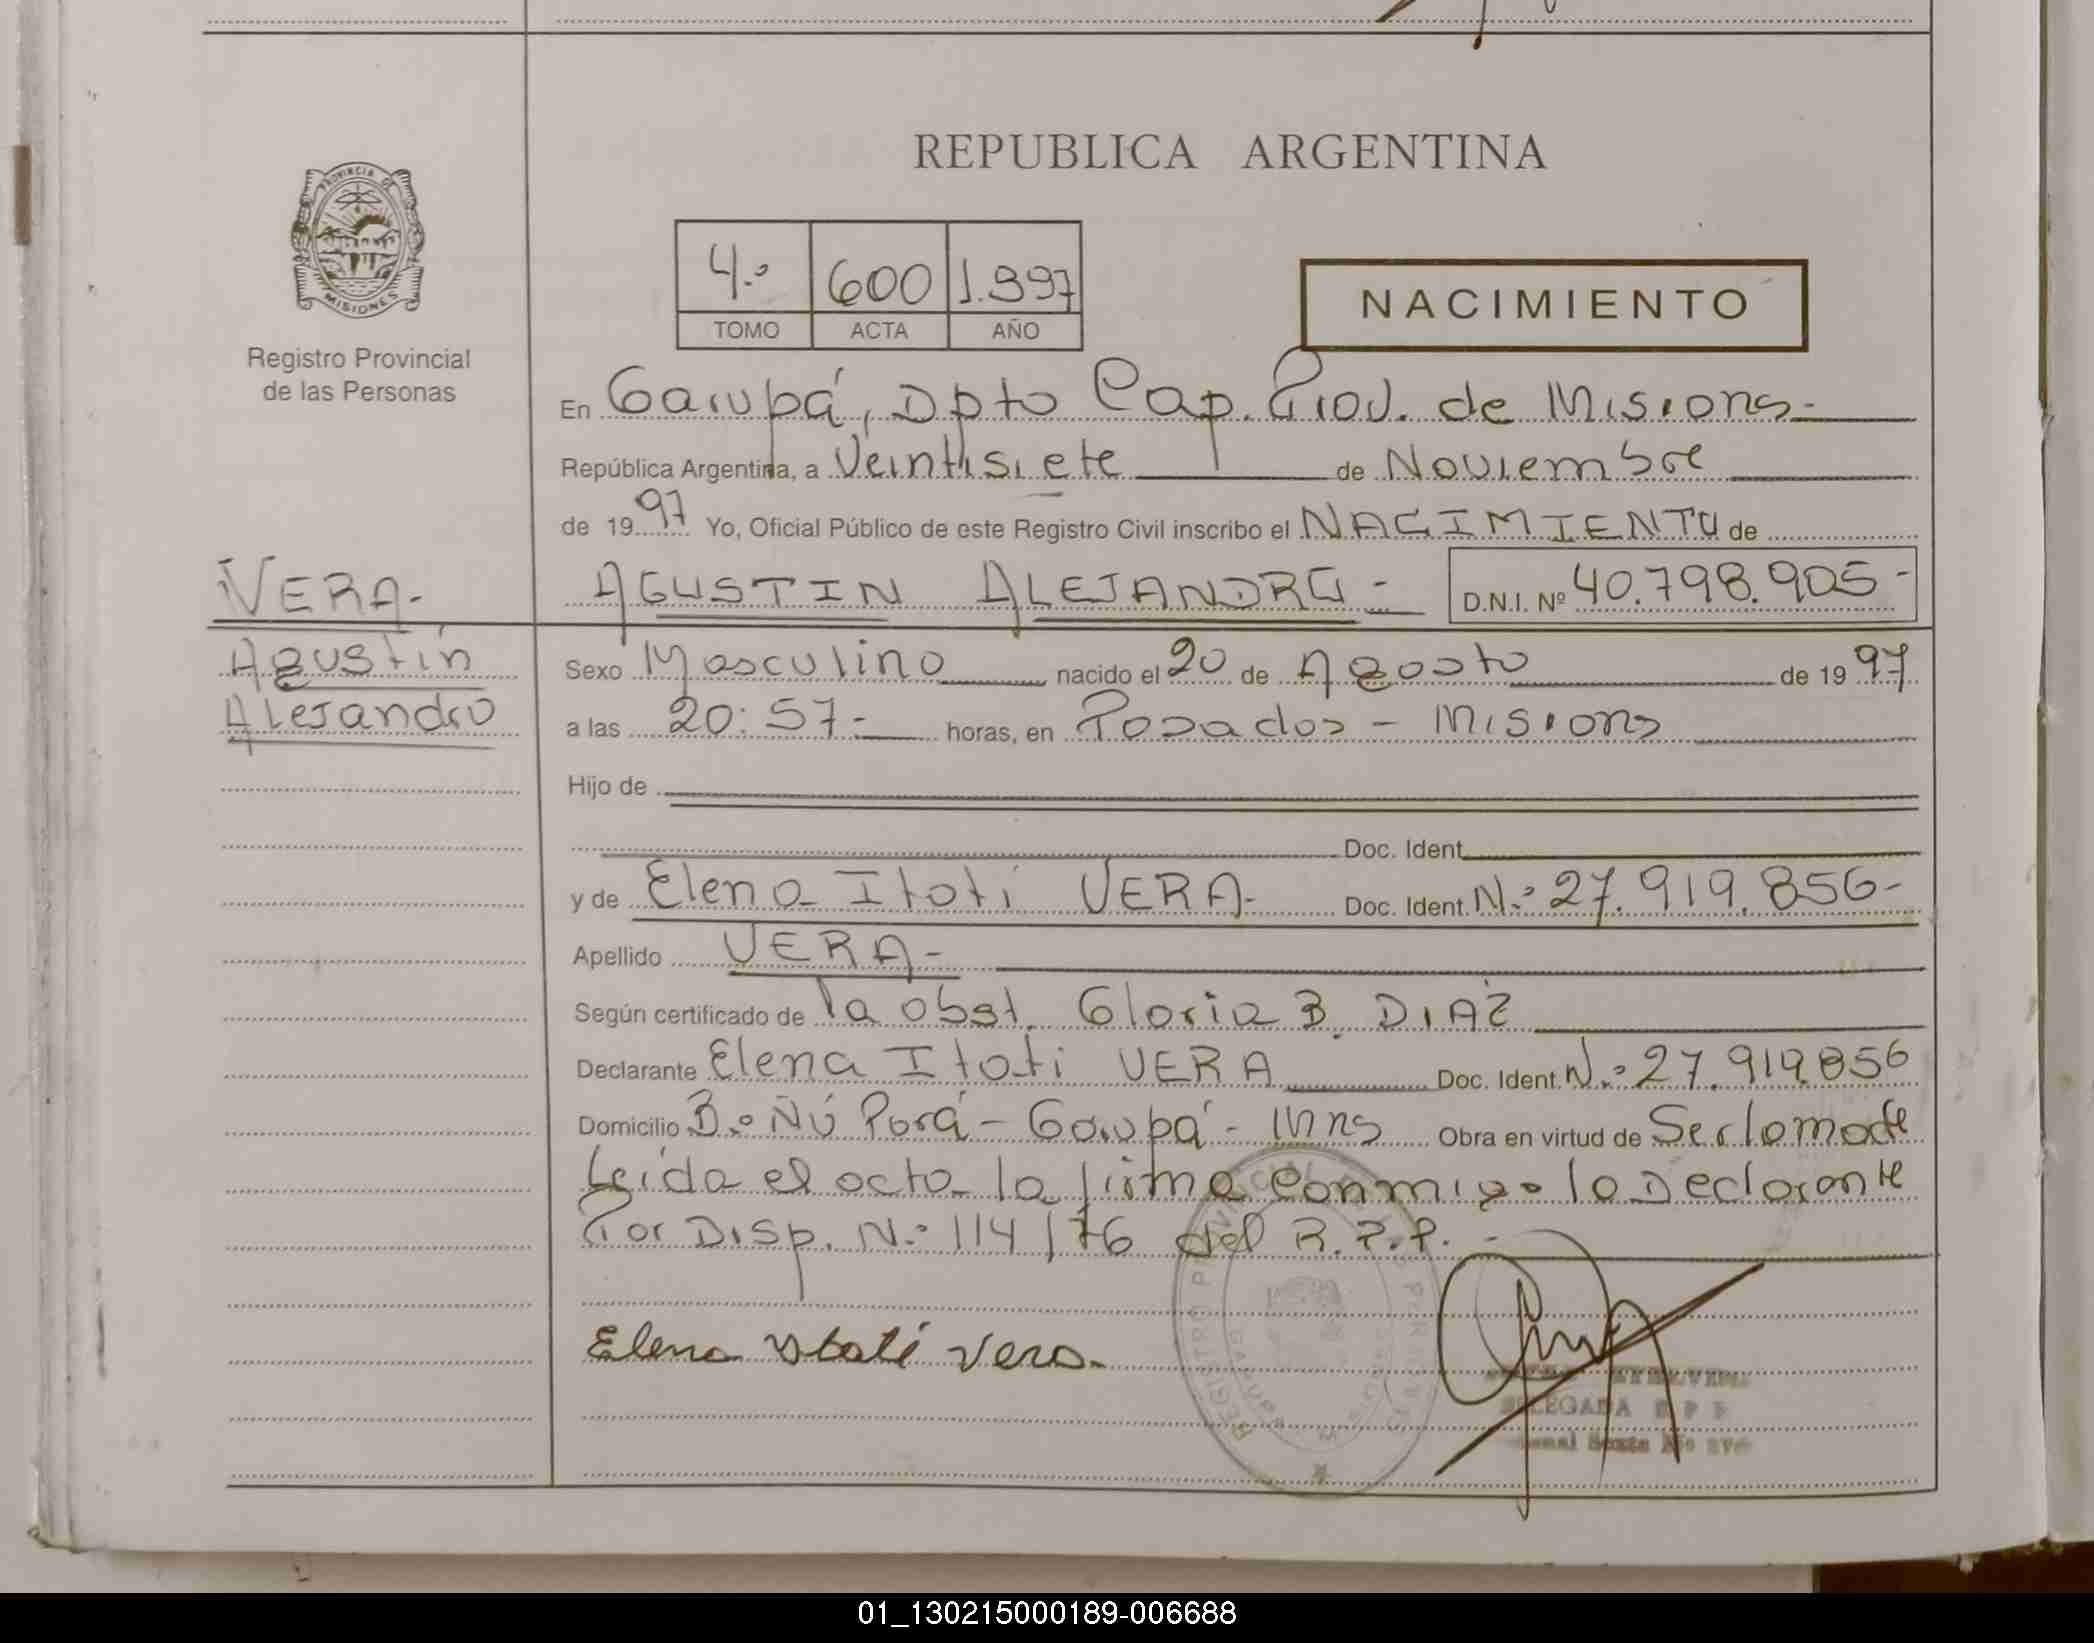 REPUBLICA ARGENTINA
PROVINCIA DE
MISIONES
Registro Provincial
de las Personas
4.º 600 1.997
TOMO ACTA AÑO
NACIMIENTO
En Garupá, Dpto Cap. Prov. de Misiones-
República Argentina, a Veintisiete de Noviembre
de 1997 Yo, Oficial Público de este Registro Civil inscribo el NACIMIENTO de
VERA-
AGUSTIN ALEJANDRO - D.N.I. Nº 40.798.905-
Agustín
Alejandro
Sexo Masculino nacido el 20 de Agosto de 1997
a las 20:57- horas, en Posadas - Misiones
Hijo de
Doc. Ident.
y de Elena Itatí VERA- Doc. Ident. N.º 27.919.856-
Apellido VERA-
Según certificado de la obst. Gloria B. DIAZ
Declarante Elena Itatí VERA Doc. Ident. N.º 27.919.856
Domicilio B.º Ñú Porá - Garupá - Mnes Obra en virtud de Ser la madre
Leída el acta la firma conmigo la Declarante
Por Disp. N.º 114/76 del R.P.P. -
Elena Itatí Vera.
REGISTRO PROVINCIAL
DELEGADA
01_130215000189-006688